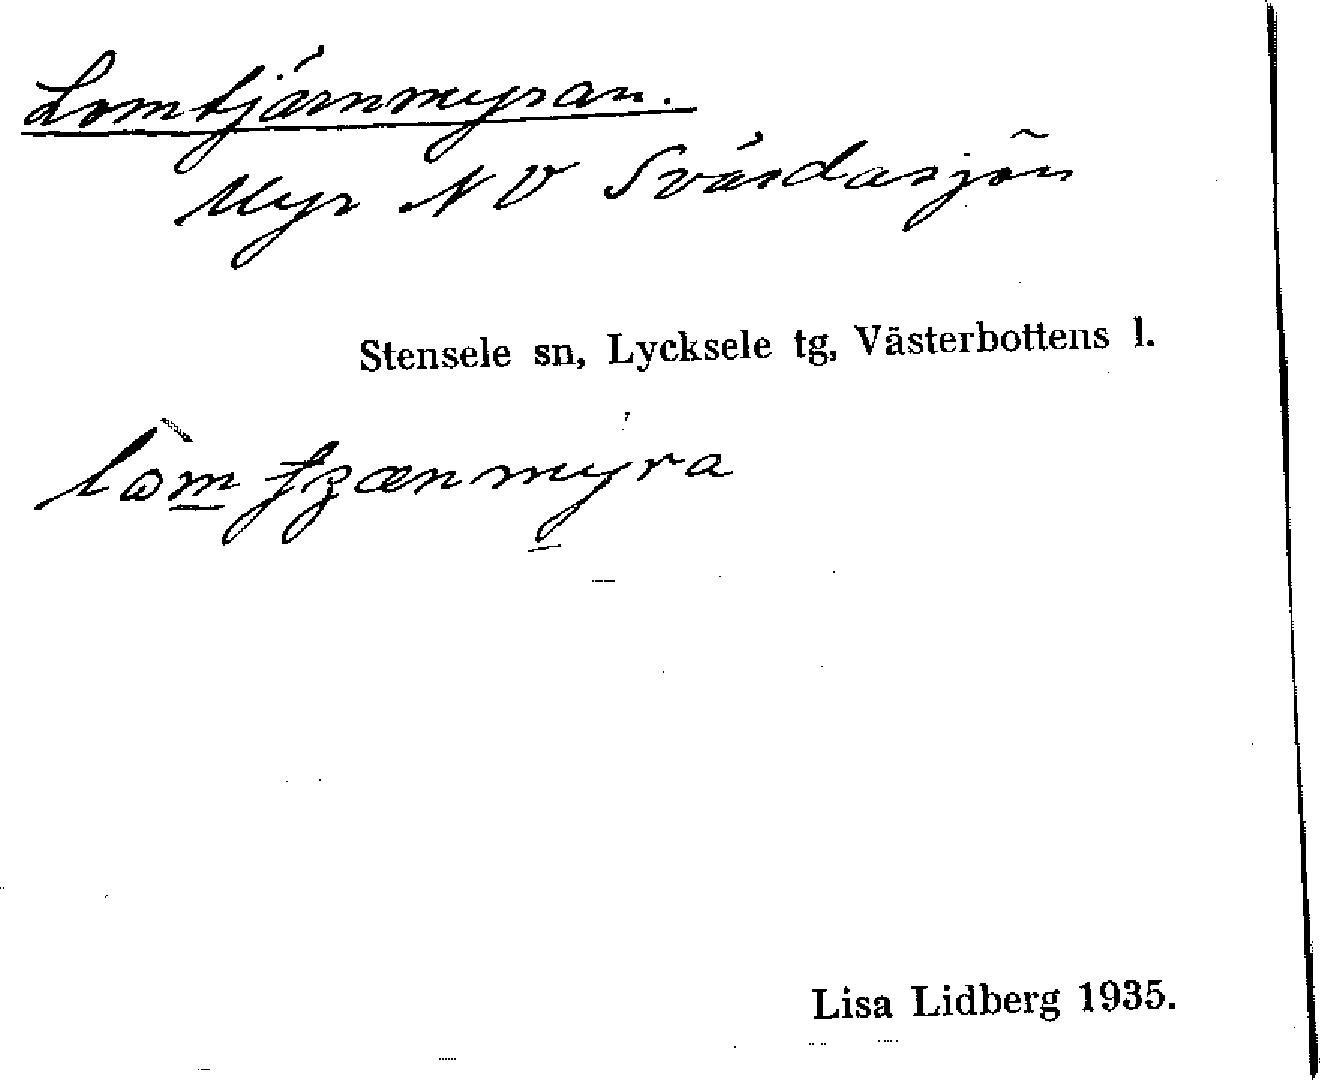 Lomtjärnmyran.
Myr NV Svärdasjön
Stensele sn, Lycksele tg, Västerbottens l.
Lisa Lidberg 1935.